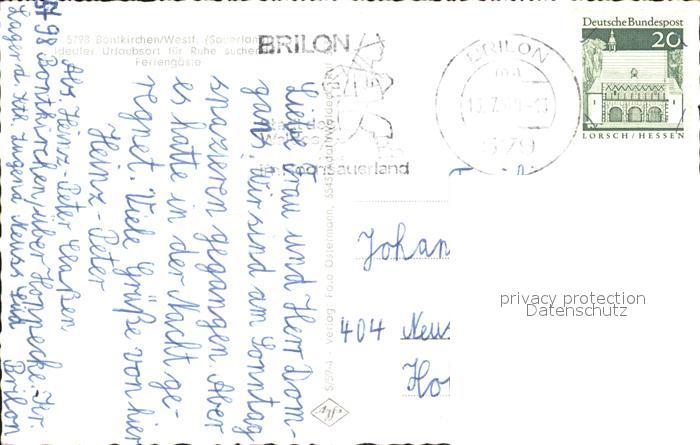 5798 Bontkirchen/Westf. (Sauerland)
Idealer Urlaubsort für Ruhe suchende
Feriengäste
BRILON
im Hochsauerland
BRILON
579
Deutsche Bundespost
20
LORSCH/HESSEN
Liebe Frau und Herr Dom-
gans. Wir sind am Sonntag
spazieren gegangen. Aber
es hatte in der Nacht ge-
regnet. Viele Grüße von hier
Heinz-Peter
Abs. Heinz-Peter Claßen
5798 Bontkirchen, über Hoppecke. Kr.
Lager d. Kth. Jugend Neuss Süd Brilon
5/59-4 - Verlag Foto Ostermann, 5543
Johan
404 Neus
Ho
privacy protection
Datenschutz